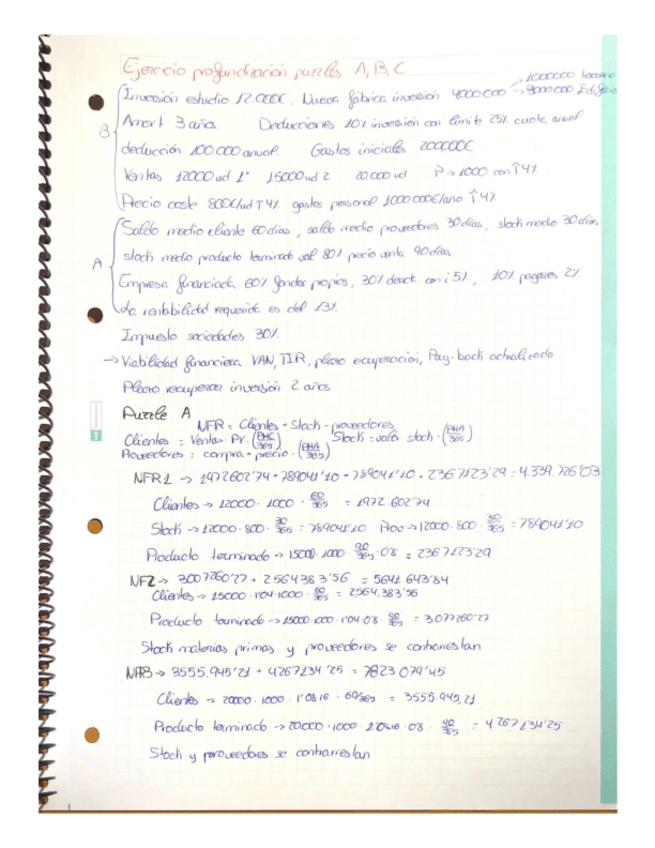 Ejercicio profundización puzzles A, B, C
Inversión estudio 12.000€. Nueva fábrica inversión 4000000 1000000 terreno
3000000 Edificio
B Amort 3 años. Deducciones 10% inversión con límite 25% cuota anual
deducción 100.000 anual. Gastos iniciales 200000€
Ventas 12000 ud 1º 15000 ud 2 20.000 ud P→1000 con ↑4%
Precio coste 800€/ud ↑4% gastos personal 1000000€/año ↑4%
Saldo medio cliente 60 días, saldo medio proveedores 30 días, stock medio 30 días
A stock medio producto terminado val 80% precio venta 90 días
Empresa financiada 60% fondos propios, 30% deuda con i 5%, 10% pagares 2%
La rentabilidad requerida es del 13%
Impuesto sociedades 30%.
→ Viabilidad financiera VAN, TIR, plazo recuperación, Pay-back actualizado
Plazo recuperar inversión 2 años
Puzzle A
NFR = Clientes + Stock - proveedores
Clientes = Ventas · Pr. (PMC/365) Stock = valor stock · (PMA/365)
Proveedores = compra · precio · (PMA/365)
NFR1 → 1972602'74 + 789041'10 - 789041'10 + 2367123'29 = 4.339.726'03
Clientes → 12000 · 1000 · 60/365 = 1972.602'74
Stock → 12000 · 800 · 30/365 = 789041'10 Prov → 12000 · 800 · 30/365 = 789041'10
Producto terminado → 15000 · 1000 · 90/365 · 0'8 = 2367123'29
NF2 → 3007260'27 + 2564383'56 = 5641643'84
Clientes → 15000 · 1'04 · 1000 · 60/365 = 2,564.383'56
Producto terminado → 15000 · 1000 · 1'04 · 0'8 · 90/365 = 3.077260'27
Stock materias primas y proveedores se contrarrestan
NFR3 → 3555.945'21 + 4267134'25 = 7823079'45
Clientes → 20000 · 1000 · 1'0816 · 60/365 = 3555.945,21
Producto terminado → 20.000 · 1000 · 1'0816 · 0'8 · 90/365 = 4267134'25
Stock y proveedores se contrarrestan